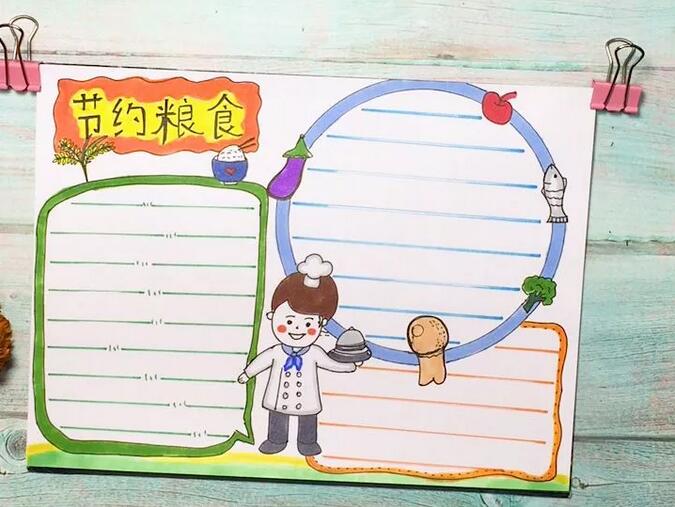 节约粮食